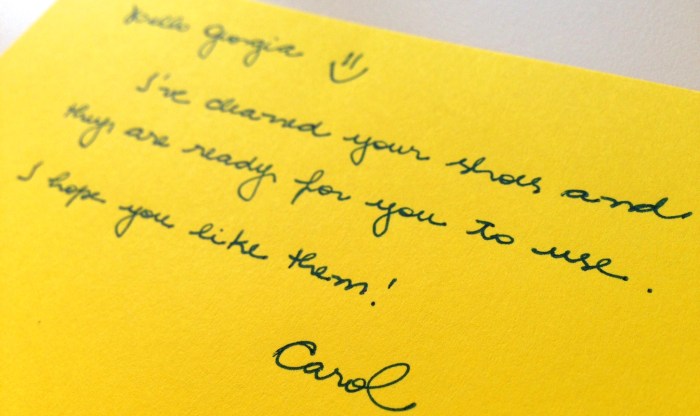 Hello Georgia
I've cleaned your shoes and
they are ready for you to use.
I hope you like them!
Carol